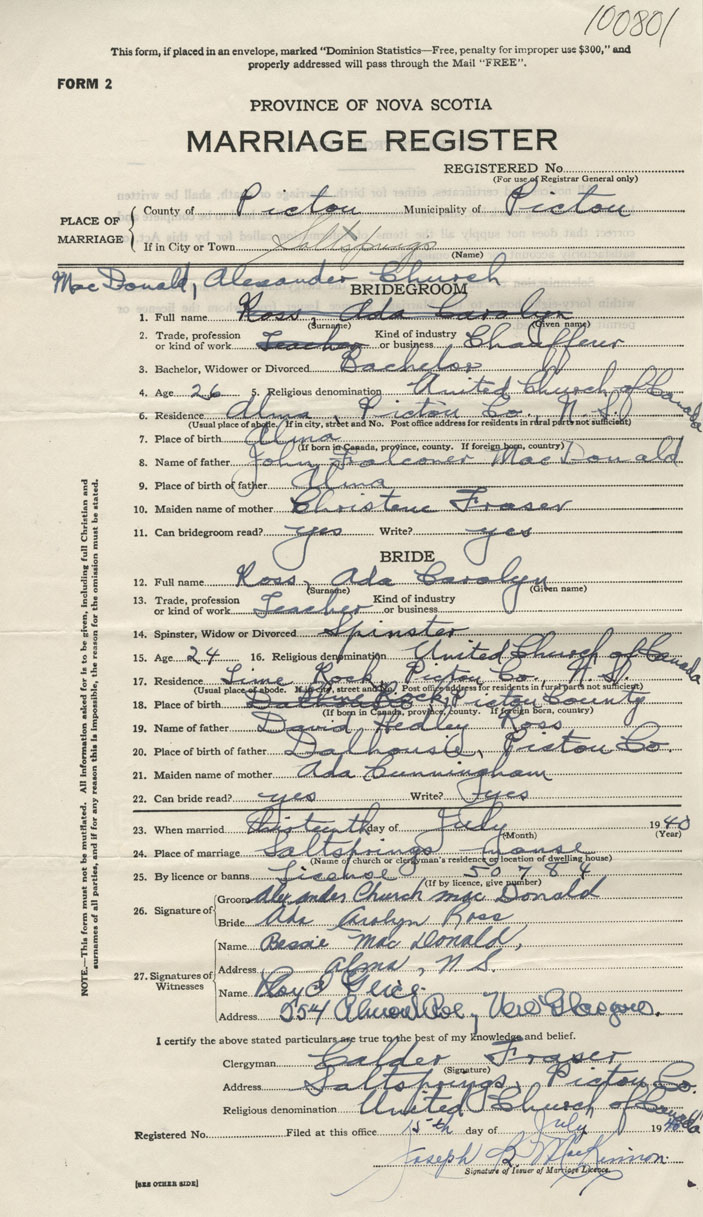 100801
This form, if placed in an envelope, marked "Dominion Statistics—Free, penalty for improper use $300," and
properly addressed will pass through the Mail "FREE".
FORM 2
PROVINCE OF NOVA SCOTIA
MARRIAGE REGISTER
REGISTERED No
(For use of Registrar General only)
PLACE OF MARRIAGE
County of Pictou Municipality of Pictou
If in City or Town Saltsprings
(Name)
MacDonald, Alexander Church
BRIDEGROOM
1. Full name Ross, Ada Carolyn
(Surname) (Given name)
2. Trade, profession or kind of work Teacher Kind of industry or business Chauffeur
3. Bachelor, Widower or Divorced Bachelor
4. Age 26 5. Religious denomination United Church of Canada
6. Residence Alma, Pictou Co., N.S.
(Usual place of abode. If in city, street and No. Post office address for residents in rural parts not sufficient)
7. Place of birth Alma
(If born in Canada, province, county. If foreign born, country)
8. Name of father John Falconer MacDonald
9. Place of birth of father Alma
10. Maiden name of mother Christene Fraser
11. Can bridegroom read? yes Write? yes
BRIDE
12. Full name Ross, Ada Carolyn
(Surname) (Given name)
13. Trade, profession or kind of work Teacher Kind of industry or business
14. Spinster, Widow or Divorced Spinster
15. Age 24 16. Religious denomination United Church of Canada
17. Residence Lime Rock, Pictou Co., N.S.
(Usual place of abode. If in city, street and No. Post office address for residents in rural parts not sufficient)
18. Place of birth Dalhousie Lime Rock, Pictou County
(If born in Canada, province, county. If foreign born, country)
19. Name of father David Hedley Ross
20. Place of birth of father Dalhousie, Pictou Co.
21. Maiden name of mother Ada Cunningham
22. Can bride read? yes Write? yes
23. When married day of July 1940
(Month) (Year)
24. Place of marriage Saltsprings manse
(Name of church or clergyman's residence or location of dwelling house)
25. By licence or banns License 50784
(If by licence, give number)
26. Signature of
Groom Alexander Church MacDonald
Bride Ada Carolyn Ross
27. Signatures of Witnesses
Name Bessie MacDonald,
Address Alma, N.S.
Name Loyd
Address 554 New Glasgow.
I certify the above stated particulars are true to the best of my knowledge and belief.
Clergyman Calder Fraser
(Signature)
Address Saltsprings, Pictou Co.
Religious denomination United Church of Canada
Registered No. Filed at this office 15th day of July 1940
Joseph MacKinnon
Signature of Issuer of Marriage Licence.
[SEE OTHER SIDE]
NOTE.—This form must not be mutilated. All information asked for is to be given, including full Christian and
surnames of all parties, and if for any reason this is impossible, the reason for the omission must be stated.